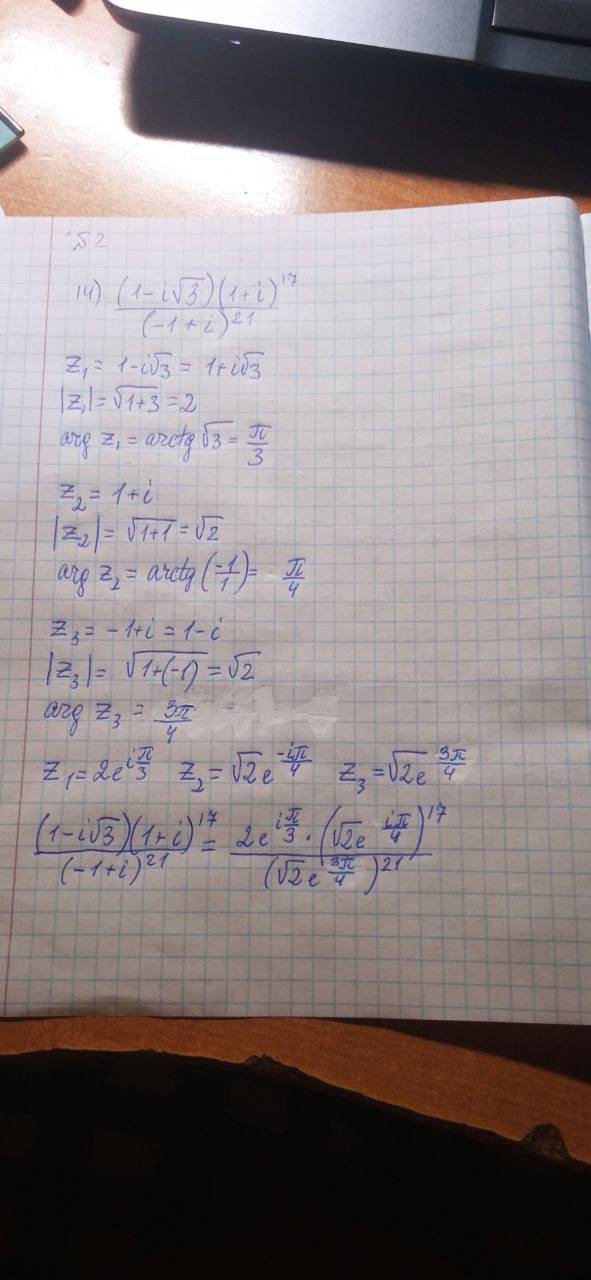 №2
14) (1-i√3)(1+i)^17 / (-1+i)^21
z₁ = 1-i√3 = 1+i√3
|z₁| = √(1+3) = 2
arg z₁ = arctg √3 = π/3
z₂ = 1+i
|z₂| = √(1+1) = √2
arg z₂ = arctg (-1/1) = π/4
z₃ = -1+i = 1-i
|z₃| = √(1+(-1)) = √2
arg z₃ = 3π/4
z₁ = 2e^(iπ/3) z₂ = √2e^(-iπ/4) z₃ = √2e^(3π/4)
(1-i√3)(1+i)^17 / (-1+i)^21 = 2e^(iπ/3) · (√2e^(iπ/4))^17 / (√2e^(3π/4))^21